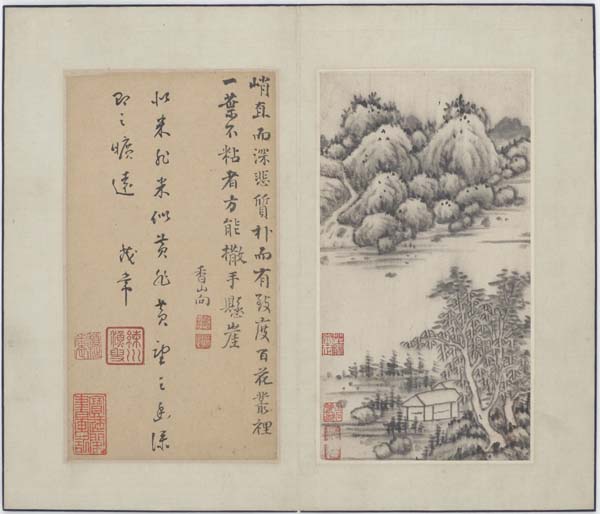 峭直而深悲質朴而有致度百花叢裡
一葉不粘者方能撒手懸崖
香山向
似米非米似黄非黄望之幽深
即之曠遠